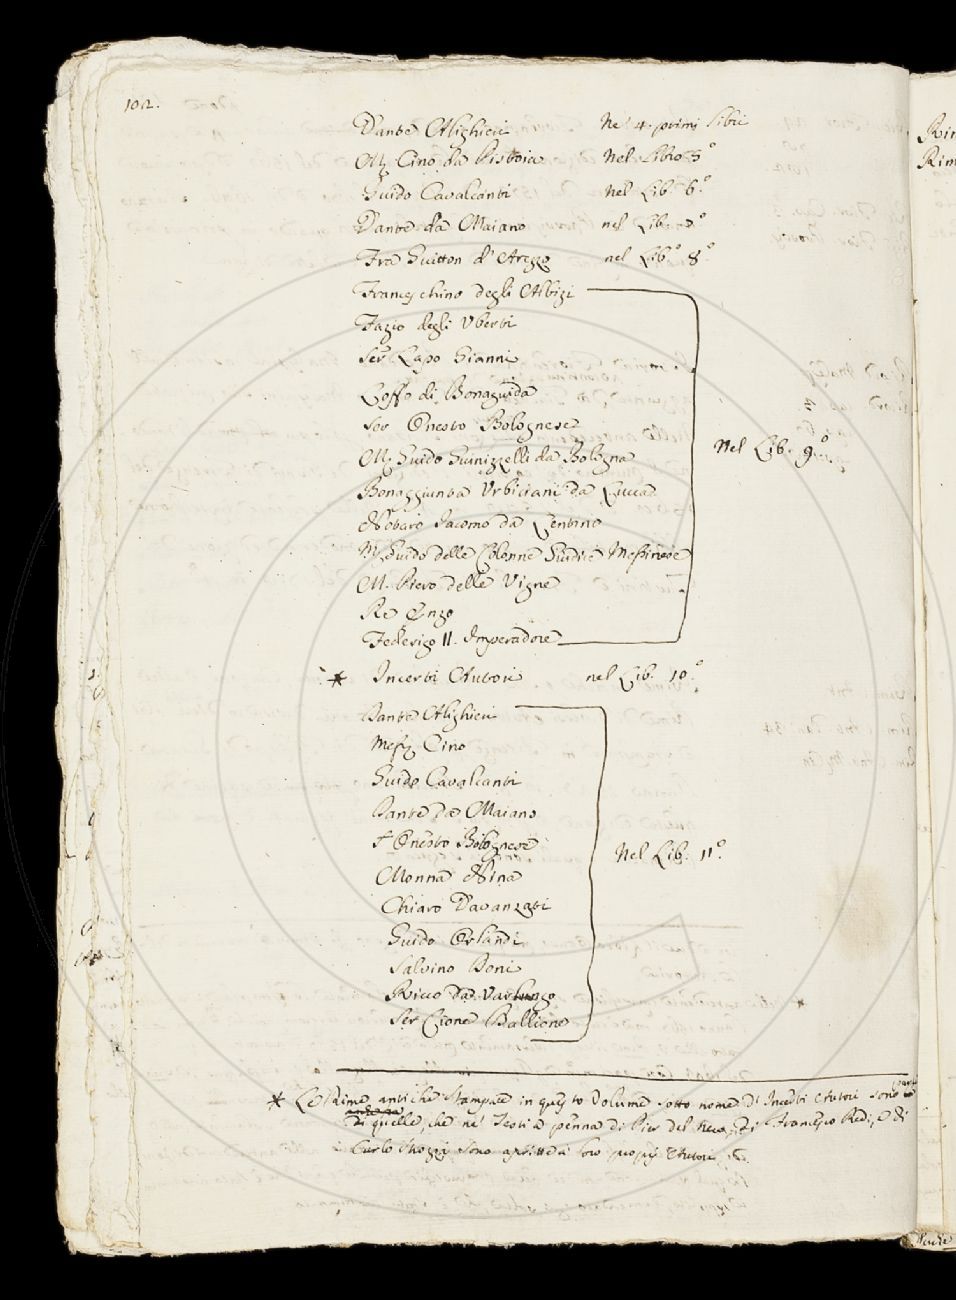 102.
Dante Alighieri Ne' 4. primi libri
M. Cino da Pistoia Nel Libro 5°
Guido Cavalcanti nel Lib. 6.°
Dante da Maiano nel Lib. 7°
Fra Guitton d'Arezzo nel Lib.° 8.°
Franceschino degli Albizi
Fazio degli Uberti
Ser Lapo Gianni
Loffo di Bonaguida
Ser Onesto Bolognese
M. Guido Guinizzelli da Bologna
Nel Lib. 9.°
Bonaggiunta Urbiciani da Lucca
Notaro Jacomo da Lentino
M. Guido delle Colonne Giudice Messinese
M. Piero delle Vigne
Re Enzo
Federigo II. Imperadore
* Incerti Autori nel Lib. 10.°
Dante Alighieri
Mess. Cino
Guido Cavalcanti
Dante da Maiano
S. Onesto Bolognese
Nel Lib. 11.°
Monna Nina
Chiaro Davanzati
Guido Orlandi
Salvino Doni
Ricco da Varlungo
Ser Cione Ballione
* Le Rime antiche stampate in questo Volume sotto nome d'Incerti Autori sono
di quelle, che ne' Testi a penna di Pier del Nero, di Francesco Redi, e di
Carlo Strozzi sono ascritte a' loro proprj Autori &c.